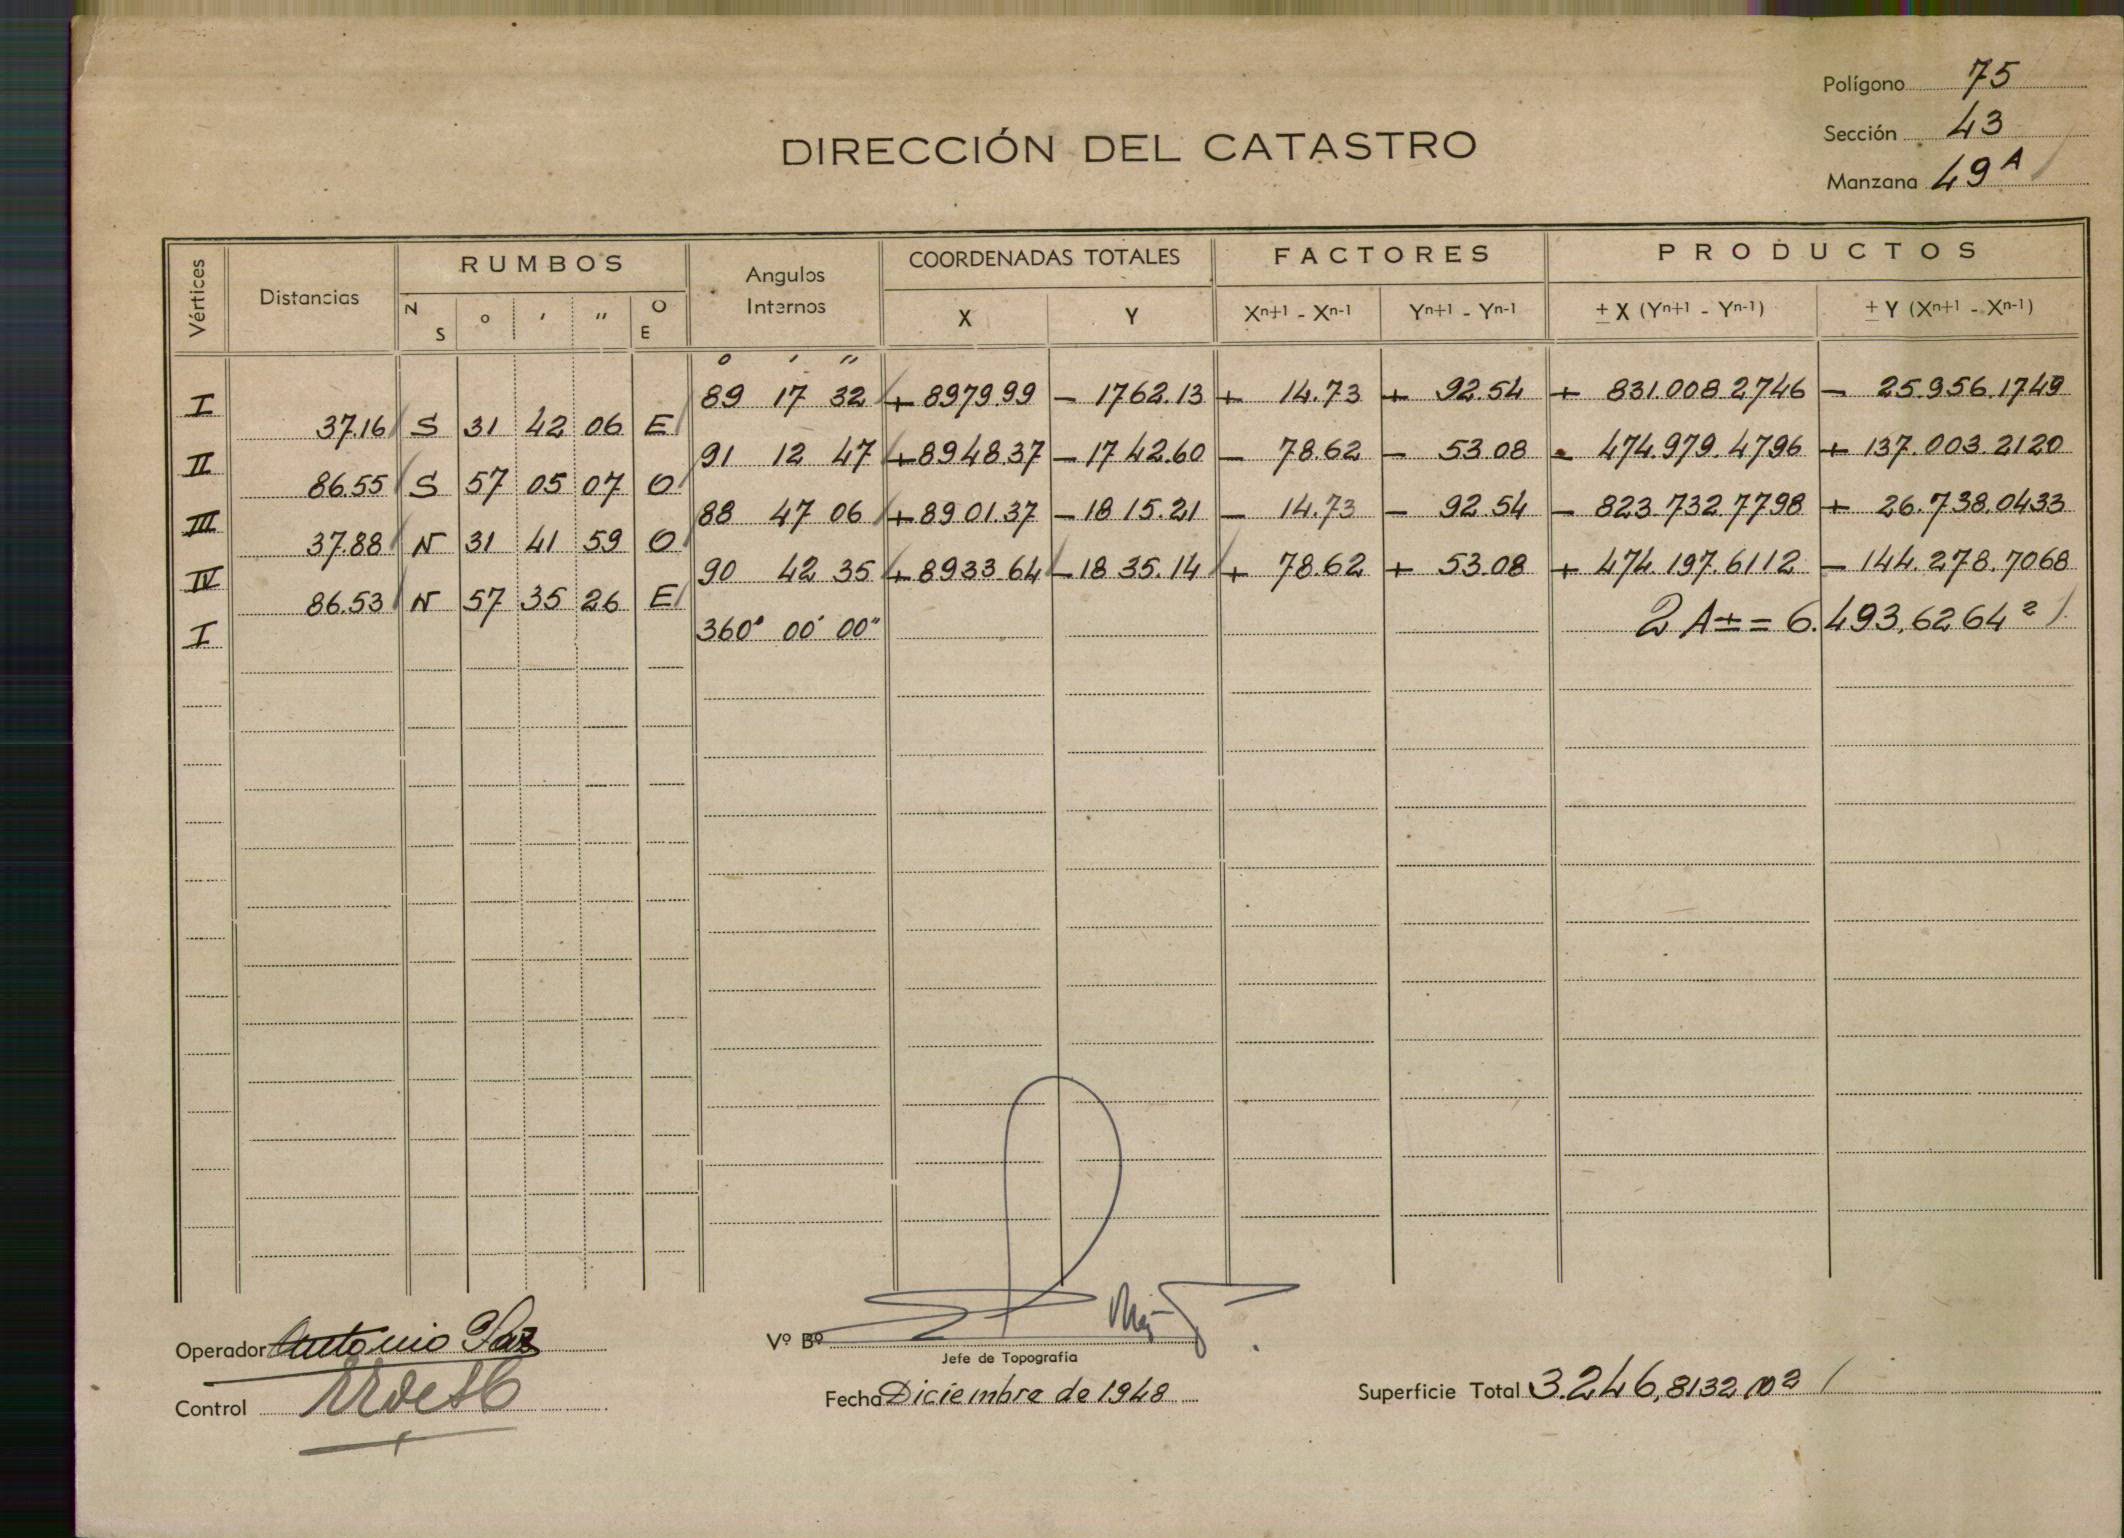 Polígono 75
Sección 43
Manzana 49 A
DIRECCIÓN DEL CATASTRO
Vértices Distancias RUMBOS Angulos Internos COORDENADAS TOTALES FACTORES PRODUCTOS
N S o ' " O E X Y Xn+1 - Xn-1 Yn+1 - Yn-1 ± X (Yn+1 - Yn-1) ± Y (Xn+1 - Xn-1)
o ' "
I 89 17 32 + 8979.99 - 1762.13 + 14.73 + 92.54 + 831.008 2746 - 25.956.1749
37.16 S 31 42 06 E
II 91 12 47 + 8948.37 - 1742.60 - 78.62 - 53.08 - 474.979.4796 + 137.003.2120
86.55 S 57 05 07 O
III 88 47 06 + 8901.37 - 1815.21 - 14.73 - 92 54 - 823.732 7798 + 26.738.0433
37.88 N 31 41 59 O
IV 90 42 35 + 8933.64 - 1835.14 + 78.62 + 53.08 + 474.197.6112 - 144.278.7068
86.53 N 57 35 26 E
I 360° 00' 00" 2 A ± = 6.493,6264 ²
Operador Antonio Paz
Control
Vº Bº
Jefe de Topografía
Fecha Diciembre de 1948
Superficie Total 3.246,8132 m2